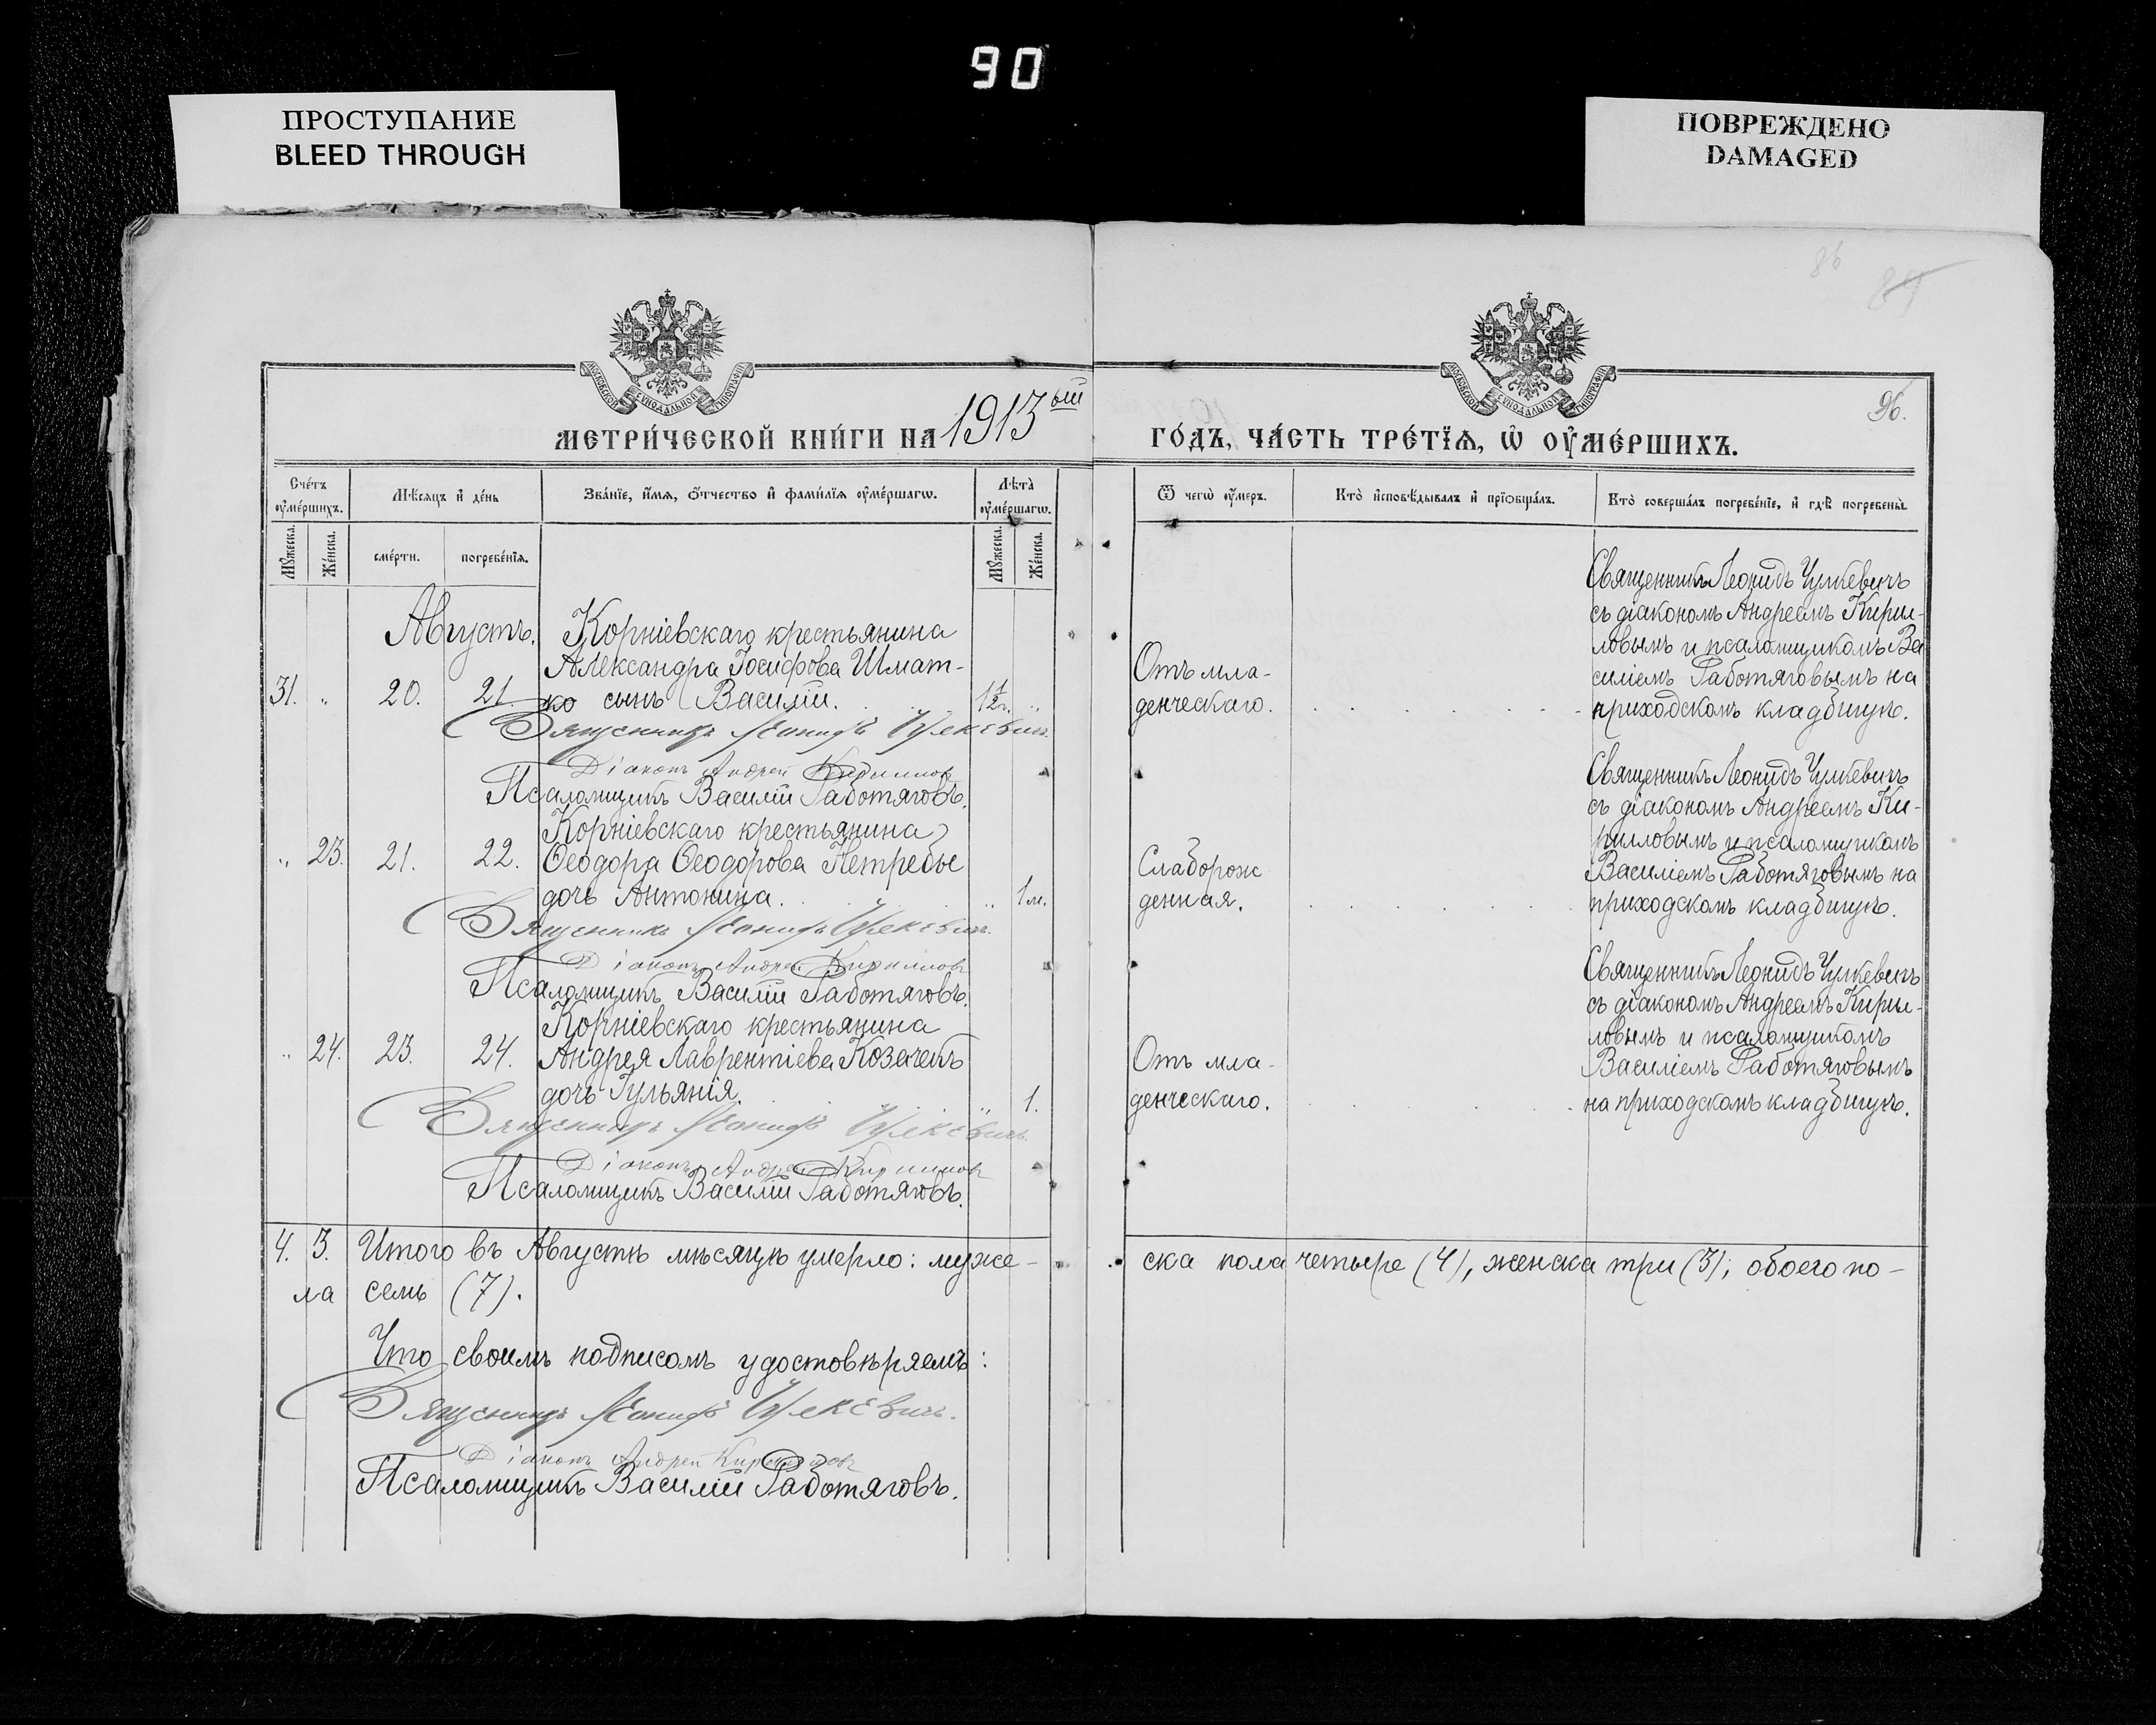 90
ПРОСТУПАНИЕ
BLEED THROUGH
ПОВРЕЖДЕНО
DAMAGED
86
96.
МОСКОВСКОЙ СѴНОДАЛЬНОЙ ТИПОГРАФІИ
МОСКОВСКОЙ СѴНОДАЛЬНОЙ ТИПОГРАФІИ
МЕТРИ́ЧЕСКОЙ КНИ́ГИ НА 1913ый
ГО́ДЪ, ЧА́СТЬ ТРЕ́ТЇѦ, Ѡ҆ ОУ҆МЕ́РШИХЪ.
Сче́тъ оу҆ме́ршихъ.
Мꙋ́жеска.
Же́нска.
Мѣ́сѧцъ и҆ де́нь
сме́рти.
погребе́нїѧ.
Зва́нїе, и҆́мѧ, ѻ҆́тчество и҆ фами́лїѧ оу҆ме́ршагѡ.
Лѣ̑та оу҆ме́ршагѡ.
Мꙋ́жеска.
Же́нска.
Ѿ чегѡ̀ оу҆́меръ.
Кто̀ и҆сповѣ́дывалъ и҆ прїѡбща́лъ.
Кто̀ соверша́лъ погребе́нїе, и҆ гдѣ̀ погребены̀.
Августъ.
Корніевскаго крестьянина
Александра Іосифова Шмат-
31. „ 20. 21. ко сынъ Василій. 1½г. „
Священникъ Леонидъ Чулкевичъ
Діаконъ Андрей Кирилловъ
Псаломщикъ Василій Работяговъ.
Отъ мла-
денческаго.
Священникъ Леонидъ Чулкевичъ
съ діакономъ Андреемъ Кирил-
ловымъ и псаломщикомъ Ва
силіемъ Работяговымъ на
приходскомъ кладбищѣ.
Корніевскаго крестьянина
„ 23. 21. 22. Ѳеодора Ѳеодорова Нетребы
дочь Антонина. „ 1 м.
Священникъ Леонидъ Чулкевичъ.
Діаконъ Андрей Кирилловъ
Псаломщикъ Василій Работяговъ.
Слаборож
денная.
Священникъ Леонидъ Чулкевичъ
съ діакономъ Андреемъ Ки-
рилловымъ и псаломщикомъ
Василіемъ Работяговымъ на
приходскомъ кладбищѣ.
Корніевскаго крестьянина
„ 24. 23. 24. Андрея Лаврентіева Козачекъ
дочь Іульянія. „ 1.
Священникъ Леонидъ Чулкевичъ.
Діаконъ Андрей Кирилловъ
Псаломщикъ Василій Работяговъ.
Отъ мла-
денческаго.
Священникъ Леонидъ Чулкевичъ
съ діакономъ Андреемъ Кирил-
ловымъ и псаломщикомъ
Василіемъ Работяговымъ
на приходскомъ кладбищѣ.
4. 3. Итого въ Августѣ мѣсяцѣ умерло: муже-
ска пола четыре (4), женска три (3); обоего по-
ла семь (7).
Что своимъ подписомъ удостовѣряемъ:
Священникъ Леонидъ Чулкевичъ.
Діаконъ Андрей Кирилловъ
Псаломщикъ Василій Работяговъ.